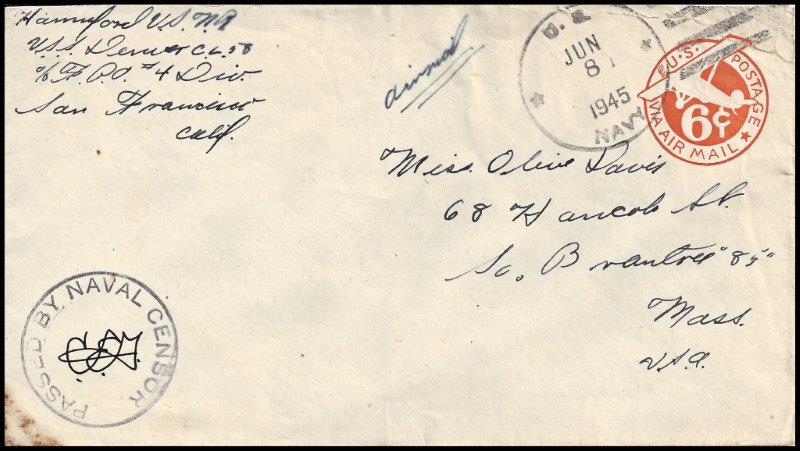 Hannyford U.S.N.R
U.S.S. Denver CL 58
c/o F.P.O. #4 Div.
San Francisco
Calif.
airmail
U.S.
JUN
8
1945
NAVY
U.S. POSTAGE
6¢
VIA AIR MAIL
Miss. Olive Davis
68 Hancock St.
So. Braintree "85"
Mass.
U.S.A.
PASSED BY NAVAL CENSOR